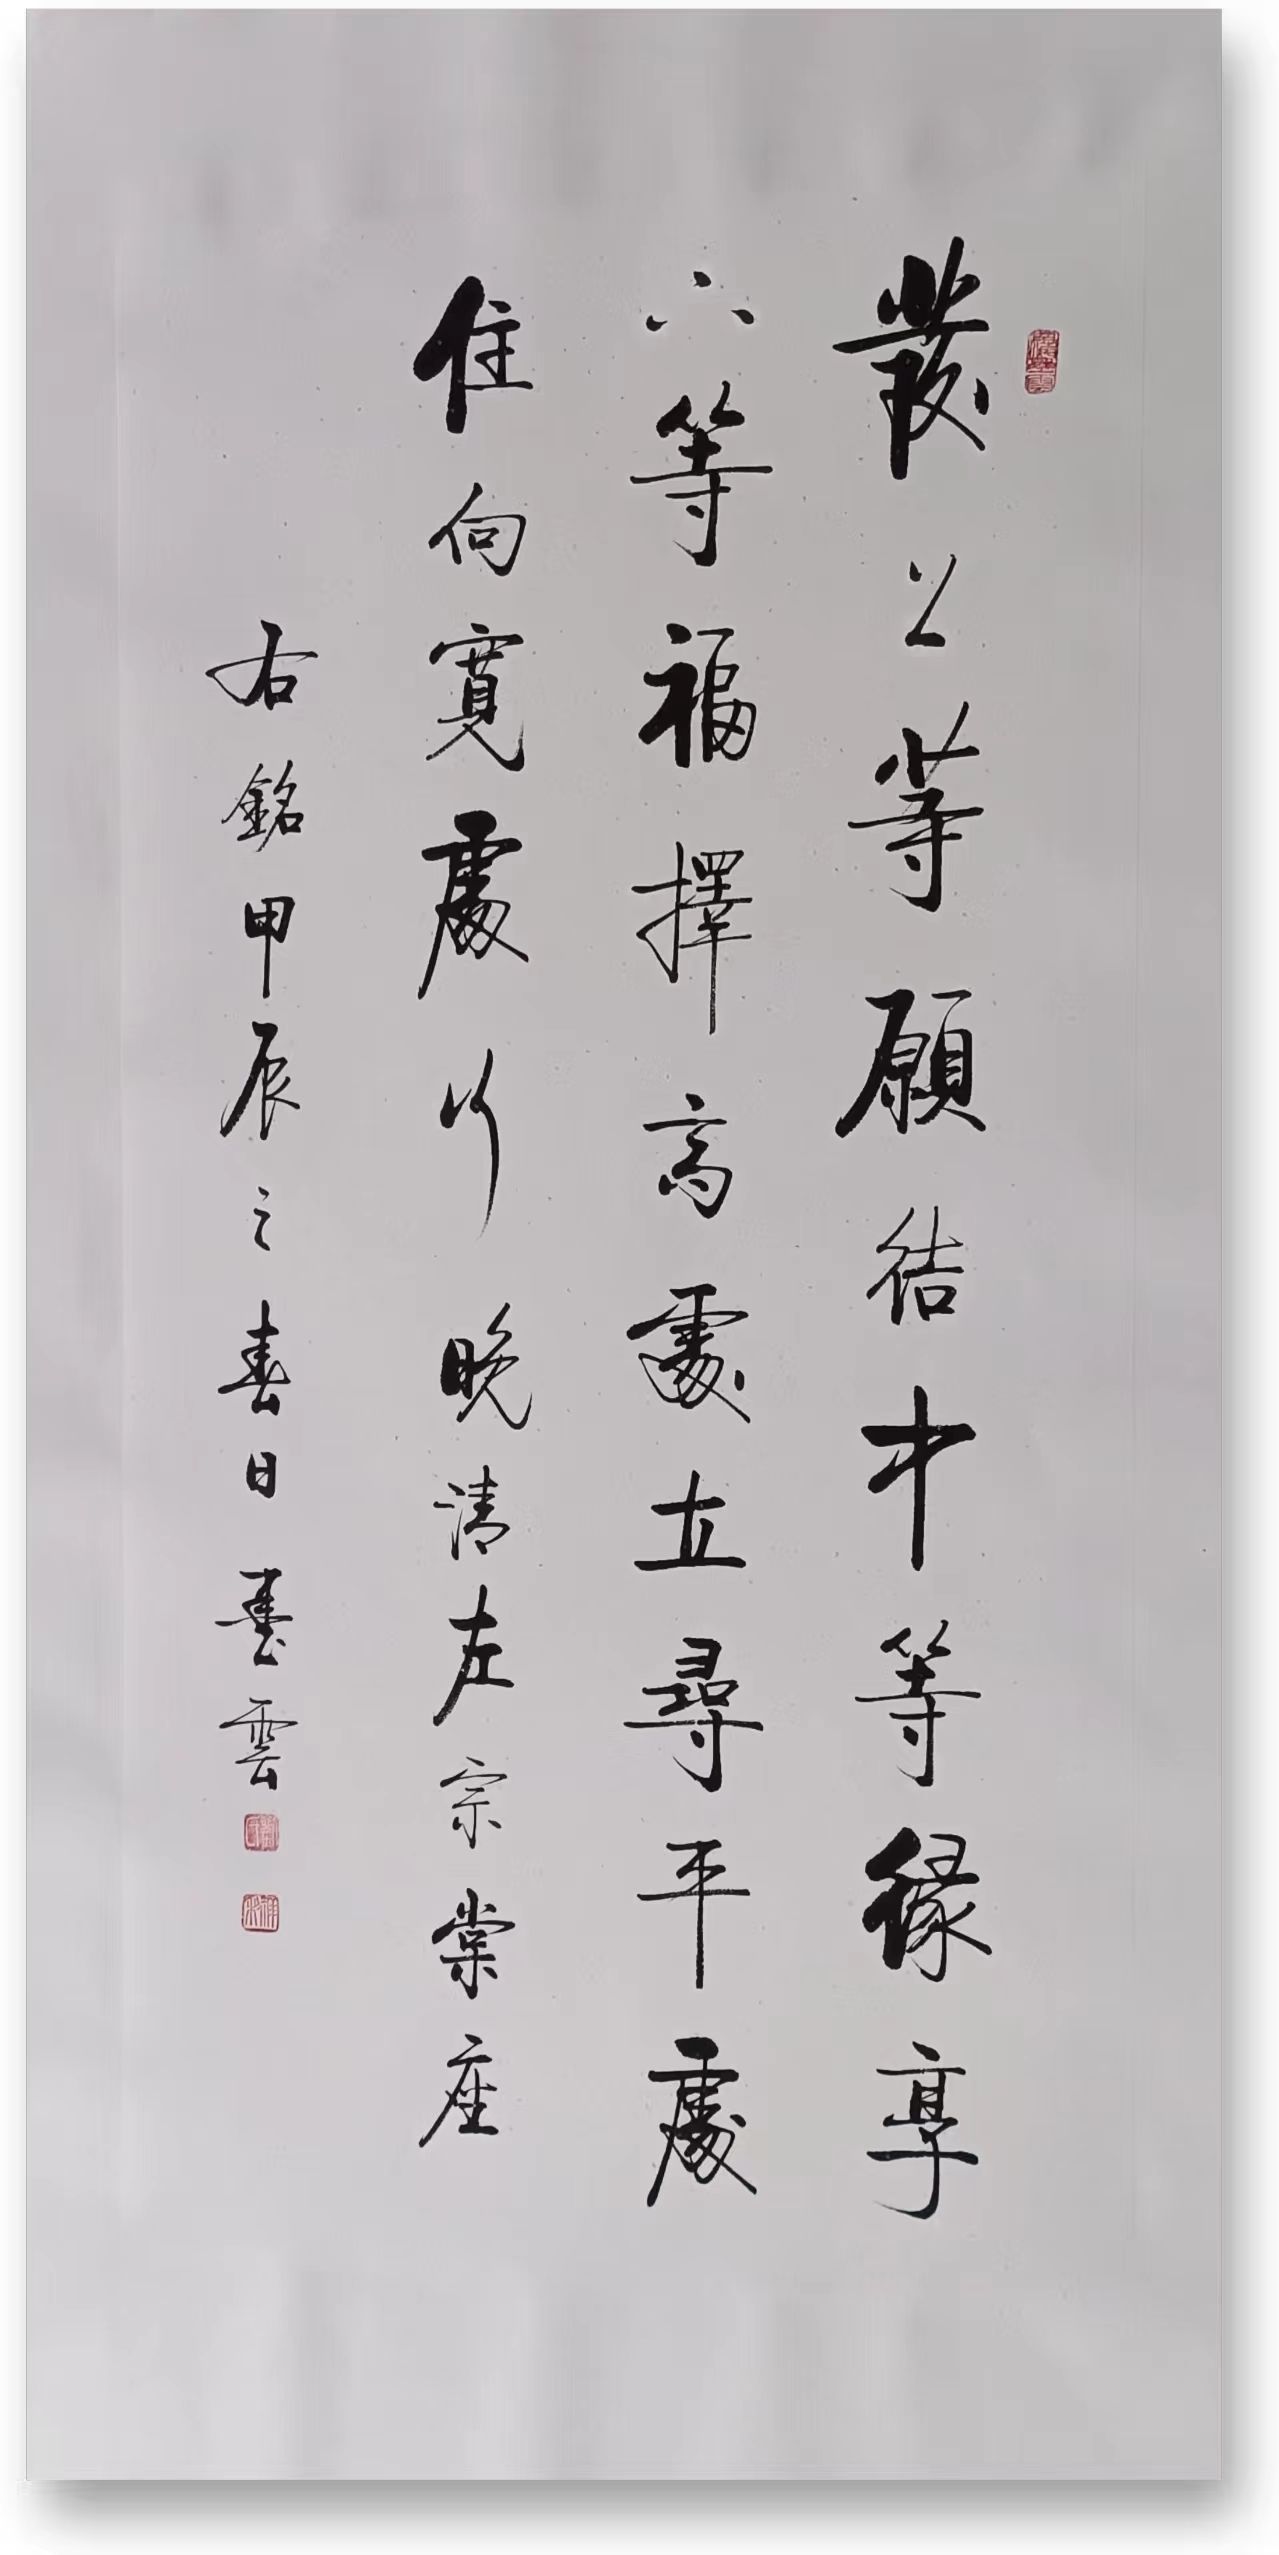 發上等願結中等緣享
下等福擇高處立尋平處
住向寬處行晚清左宗棠座
右銘甲辰之春日臺雲